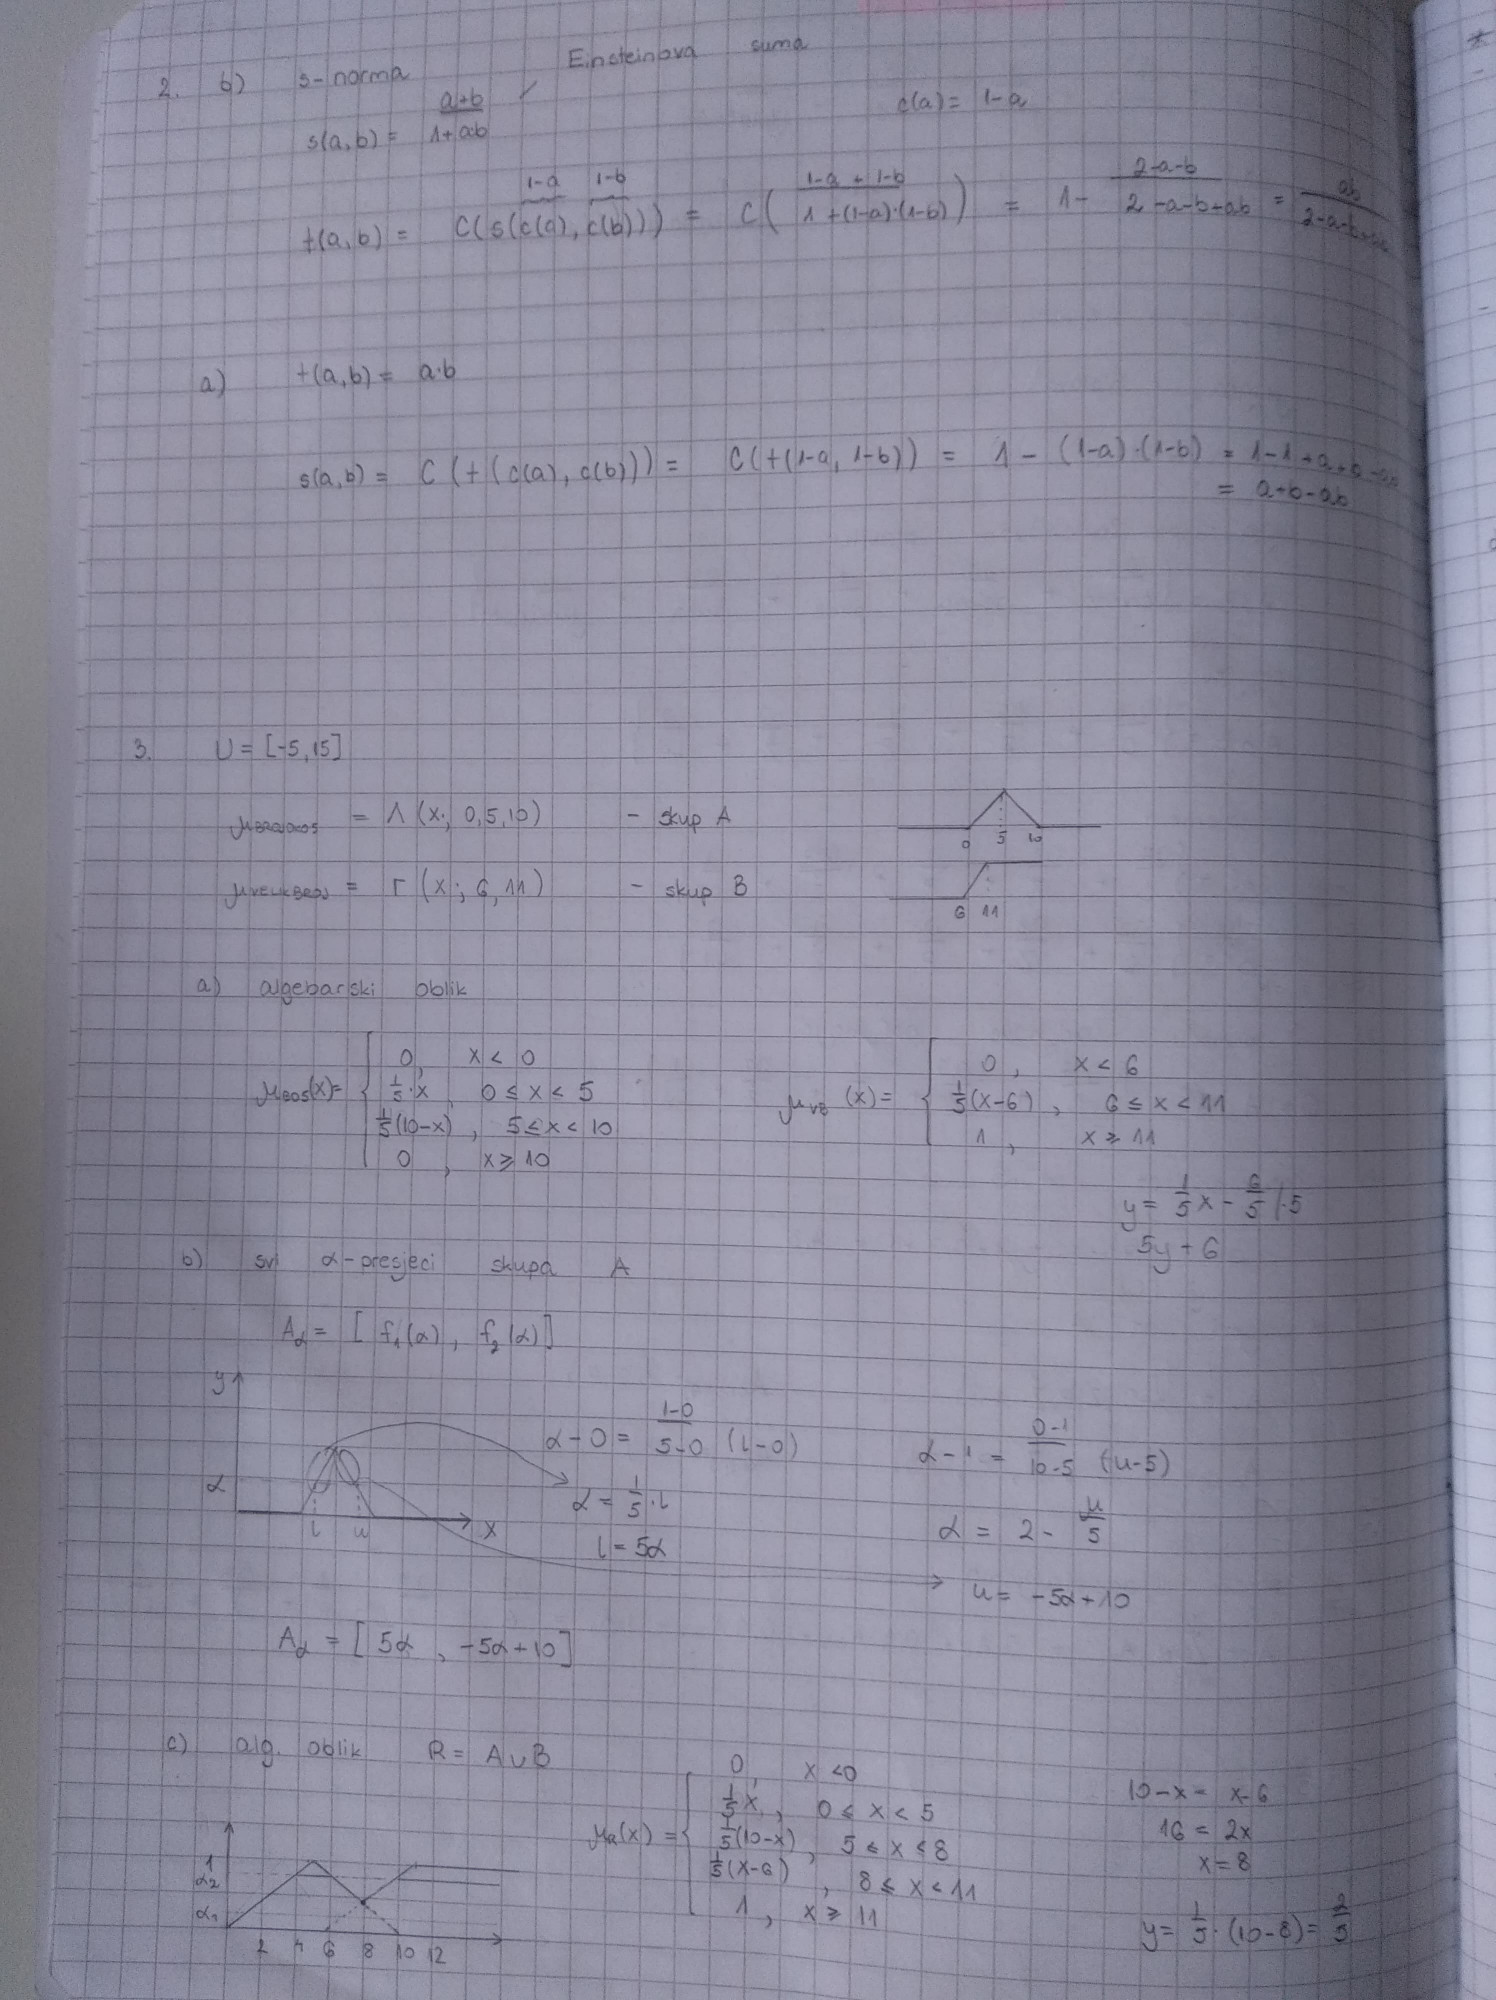 2. b) s-norma Einsteinova suma
s(a,b) = (a+b)/(1+ab) c(a) = 1-a
1-a 1-b
t(a,b) = C(s(c(a), c(b))) = C( (1-a + 1-b)/(1+(1-a)·(1-b)) ) = 1 - (2-a-b)/(2-a-b+ab) = ab/(2-a-b+ab)
a) t(a,b) = a·b
s(a,b) = C(t(c(a), c(b))) = C(t(1-a, 1-b)) = 1 - (1-a)·(1-b) = 1-1+a+b-ab
= a+b-ab
3. U = [-5,15]
= Λ(x; 0,5,10) - skup A
0 5 10
= Γ(x; 6,11) - skup B
6 11
a) algebarski oblik
0, x < 0
1/5·x, 0 ≤ x < 5
1/5(10-x), 5 ≤ x < 10
0, x ≥ 10
0, x < 6
μVB(x) = 1/5(x-6), 6 ≤ x < 11
1, x ≥ 11
y = 1/5 x - 6/5 /·5
5y + 6
b) svi α-presjeci skupa A
Aα = [f₁(α), f₂(α)]
y
α
l u x
α-0 = (1-0)/(5-0) (l-0)
α = 1/5·l
l = 5α
α-1 = (0-1)/(10-5) (u-5)
α = 2 - u/5
u = -5α+10
Aα = [5α, -5α+10]
c) alg. oblik R = A∪B
0, x < 0
1/5x, 0 ≤ x < 5
1/5(10-x), 5 ≤ x < 8
1/5(x-6), 8 ≤ x < 11
1, x ≥ 11
10-x = x-6
16 = 2x
x = 8
y = 1/5·(10-8) = 2/5
1
α₂
α₁
2 4 6 8 10 12